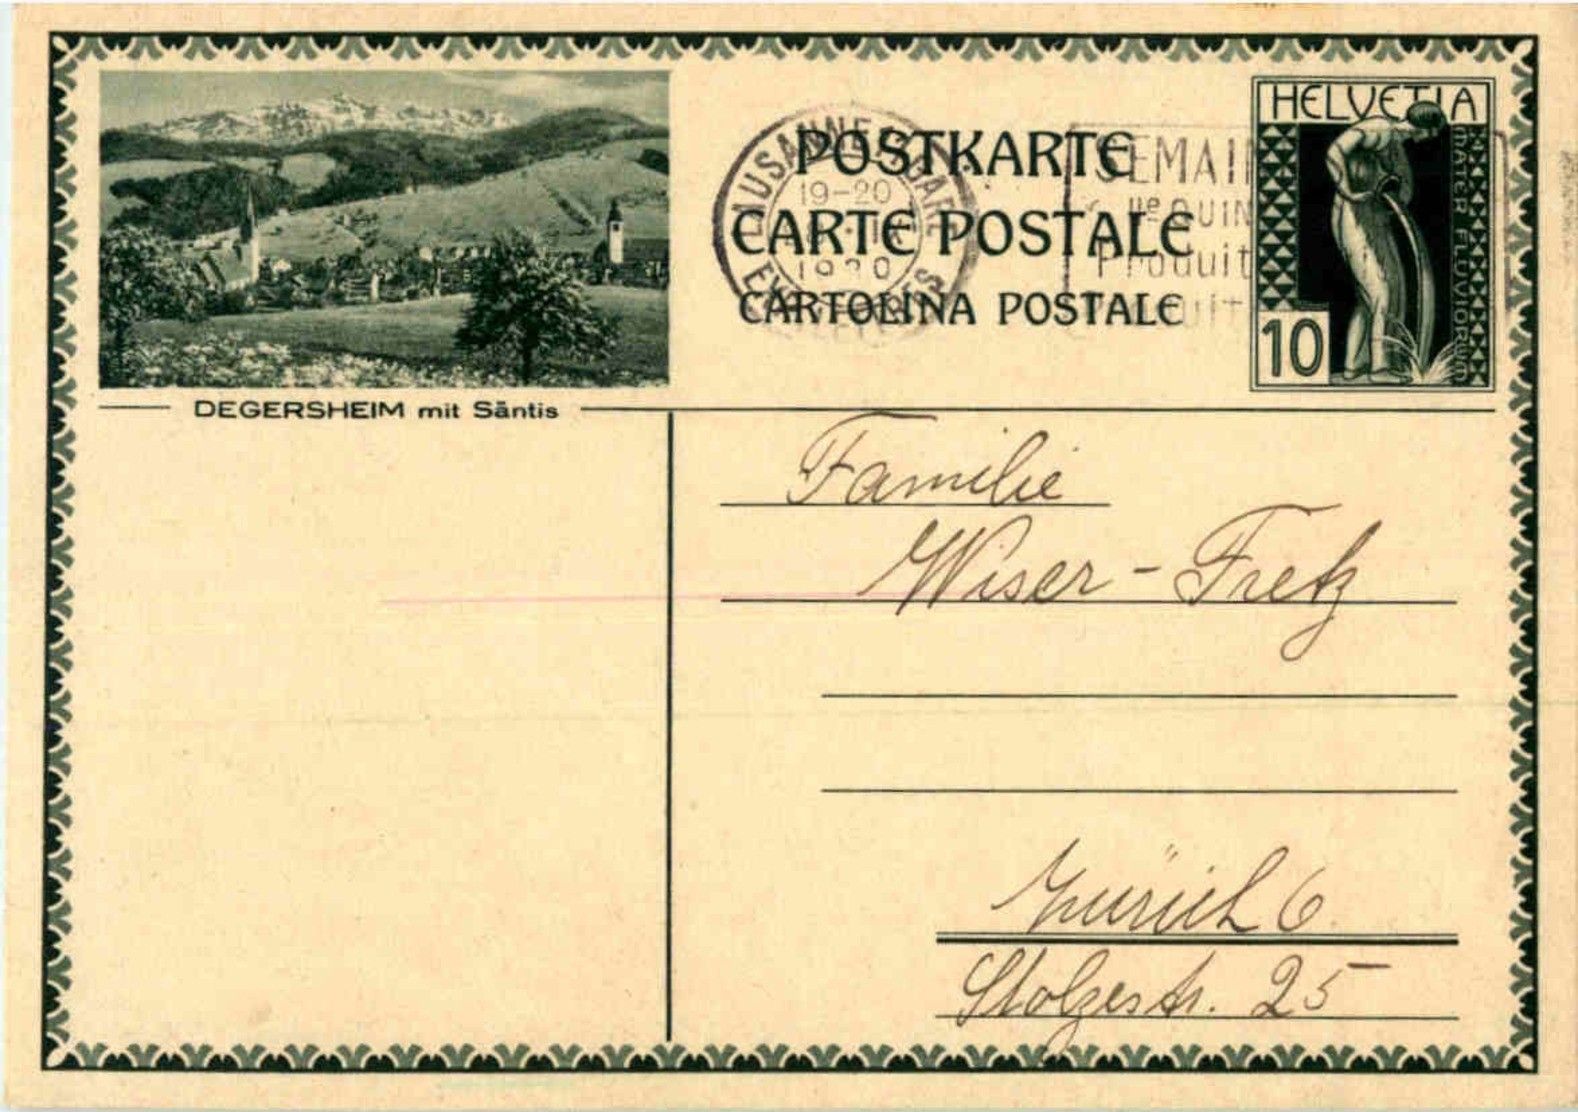 HELVETIA
MATER FLUVIORUM
10
POSTKARTE
CARTE POSTALE
CARTOLINA POSTALE
LAUSANNE GARE
19-20
SEMAI
IIe QUIN
Produit
DEGERSHEIM mit Säntis
Familie
Wiser-Fretz
Zürich 6
Stolzestr. 25